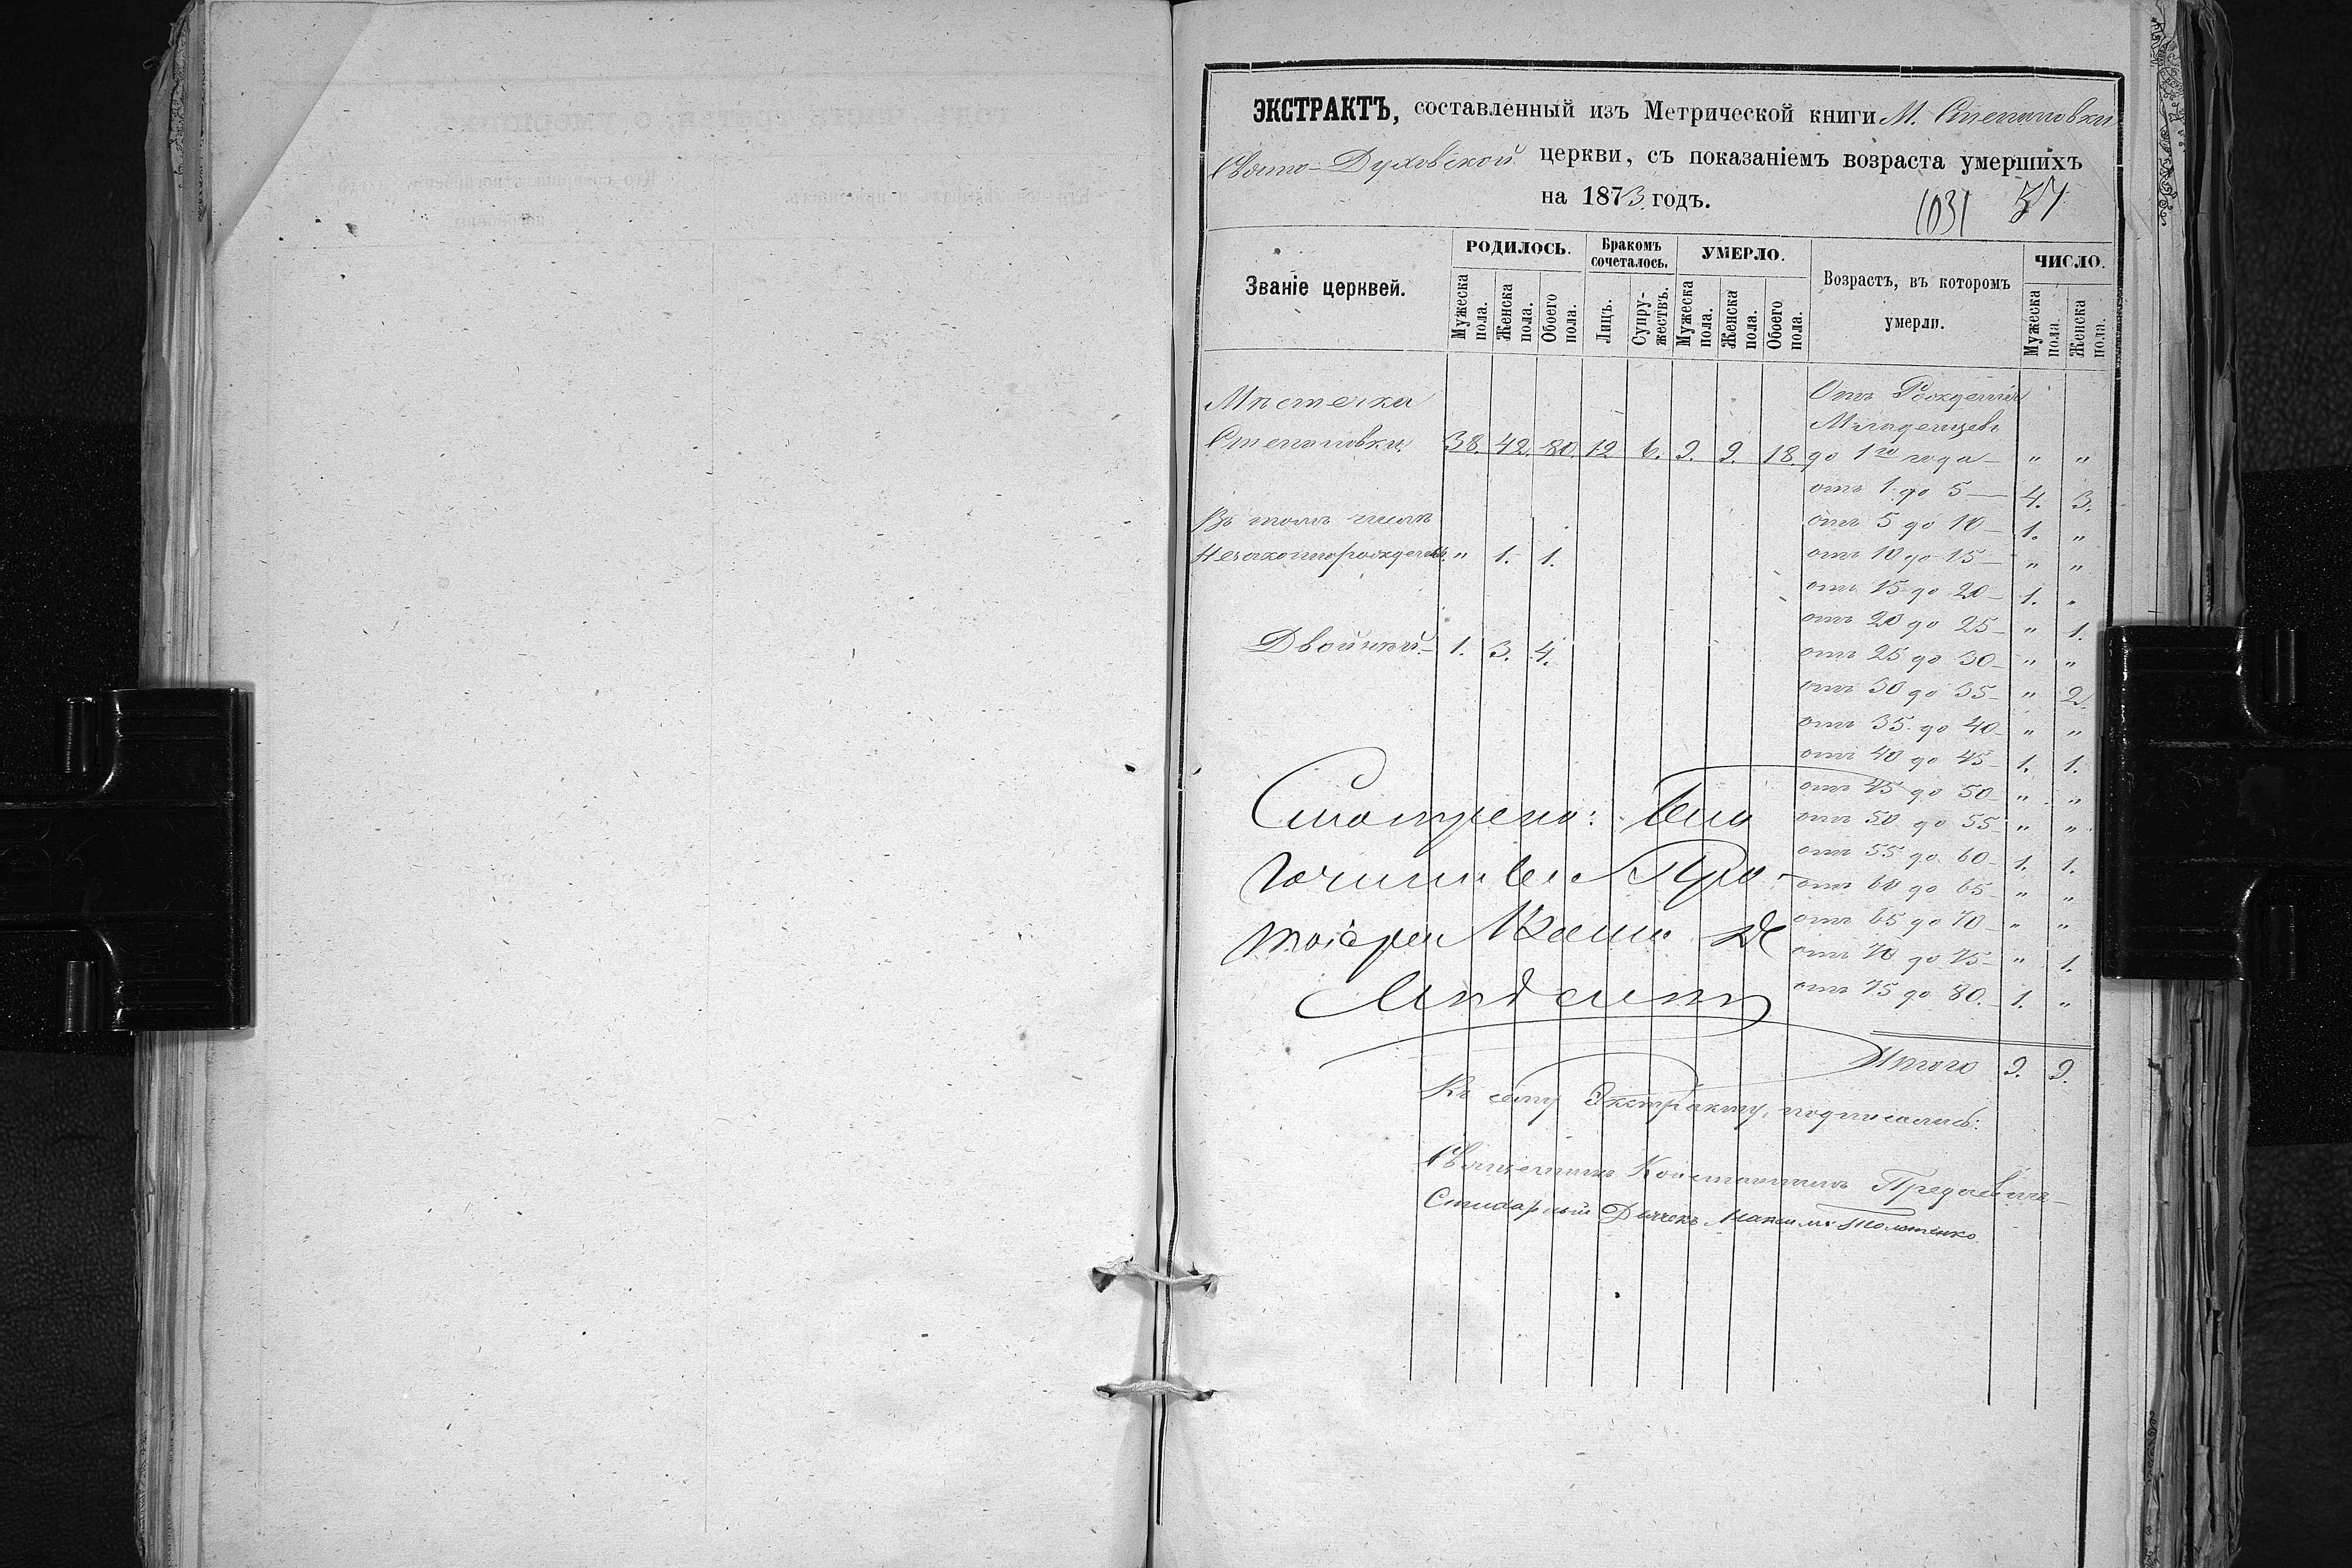 ЭКСТРАКТЪ, составленный изъ Метрической книги М. Степановки
Свято-Духовской церкви, съ показаніемъ возраста умершихъ
на 1873 годъ.
1031 57
Званіе церквей. РОДИЛОСЬ. Бракомъ сочеталось. УМЕРЛО. Возрастъ, въ которомъ умерли. ЧИСЛО.
Мужеска пола. Женска пола. Обоего пола. Лицъ. Супружествъ. Мужеска пола. Женска пола. Обоего пола. Мужеска пола. Женска пола.
Мѣстечка
Степановки 38. 42. 80. 12 6. 9. 9. 18.
Въ томъ числѣ
Незаконнорожденн. " 1. 1.
Двойней 1. 3. 4.
Отъ Рожденія
Младенцевъ
до 1го года " "
отъ 1 до 5 4. 3.
отъ 5 до 10 1. "
отъ 10 до 15 " "
отъ 15 до 20 1. "
отъ 20 до 25 " 1.
отъ 25 до 30 " "
отъ 30 до 35 " 2.
отъ 35 до 40 " "
отъ 40 до 45 1. 1.
отъ 45 до 50 " "
отъ 50 до 55 " "
отъ 55 до 60 1. 1.
отъ 60 до 65 " "
отъ 65 до 70 " "
отъ 70 до 75 " 1.
отъ 75 до 80. 1. "
Итого 9. 9.
Смотрено: Бла
гочинный Про-
тоіерей
Къ сему Экстракту, подписались:
Священникъ Константинъ
Стихарный Дьячекъ Максимъ